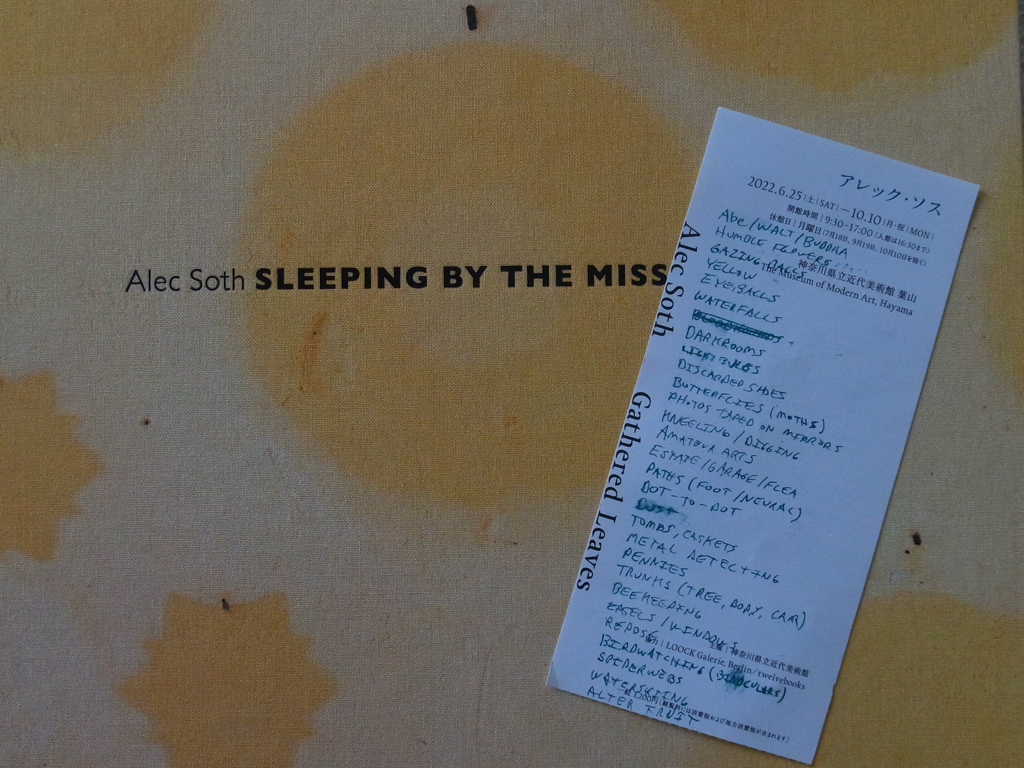 Alec Soth SLEEPING BY THE MISS
アレック・ソス
2022.6.25|土|SAT|—10.10|月・祝|MON|
開館時間|9:30-17:00(入館は16:30まで)
休館日|月曜日(7月18日、9月19日、10月10日を除く)
神奈川県立近代美術館 葉山
The Museum of Modern Art, Hayama
Alec Soth Gathered Leaves
ABE/WALT/BUDDHA
HUMBLE FLOWERS.....
GAZING BALLS
YELLOW
EYEBALLS
WATERFALLS
DARKROOMS
LIGHTBULBS
DISCARDED SHOES
BUTTERFLIES (MOTHS)
PHOTOS TAPED ON MIRRORS
KNEELING/DIGGING
AMATEUR ARTS
ESTATE/GARAGE/FLEA
PATHS (FOOT/NEURAL)
DOT-TO-DOT
DUST
TOMBS, CASKETS
METAL DETECTING
PENNIES
TRUNKS (TREE, BODY, CAR)
BEEKEEPING
EASELS/WINDOWS
REPOSE
BIRDWATCHING (BINOCULARS)
SPIDERWEBS
WATERSKIING
ALTER FRUIT
主催|神奈川県立近代美術館
協力|LOOCK Galerie, Berlin/twelvebooks